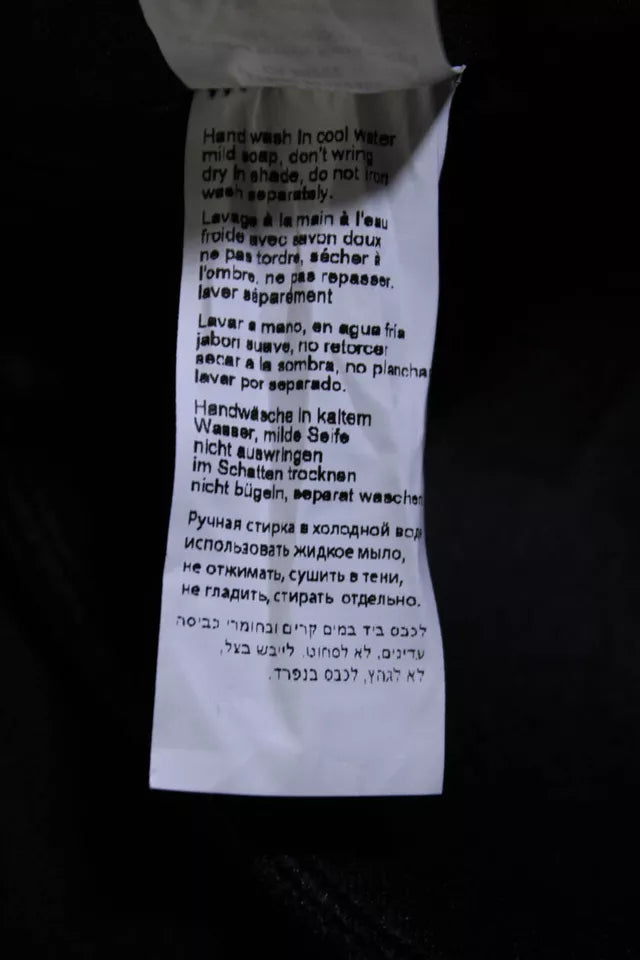 Hand wash in cool water
mild soap, don't wring
dry in shade, do not iron
wash separately.
Lavage à la main à l'eau
froide avec savon doux
ne pas tordre, sécher à
l'ombre, ne pas repasser,
laver séparément
Lavar a mano, en agua fria
jabon suave, no retorcer
secar a la sombra, no plancha
lavar por separado.
Handwäsche in kaltem
Wasser, milde Seife
nicht auswringen
im Schatten trocknen
nicht bügeln, separat waschen
Ручная стирка в холодной воде
использовать жидкое мыло,
не отжимать, сушить в тени,
не гладить, стирать отдельно.
לכבס ביד במים קרים ובחומרי כביסה
עדינים, לא לסחוט. לייבש בצל,
לא לגהץ, לכבס בנפרד.